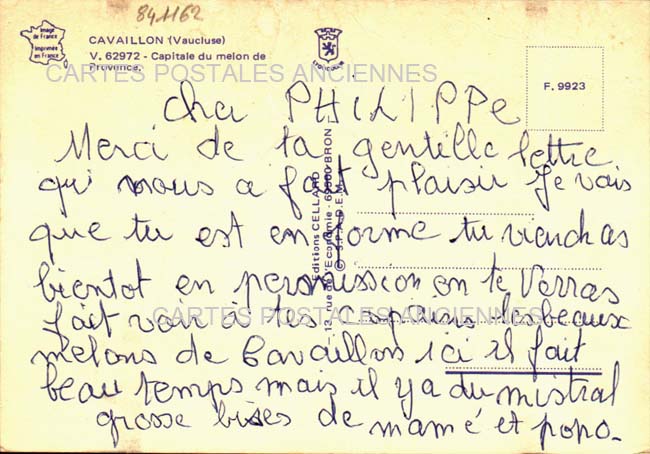 841162
Image de France
Imprimée en France
CAVAILLON (Vaucluse)
V. 62972 - Capitale du melon de Provence.
CARTES POSTALES ANCIENNES
F. 9923
cher PHILIPPE
Merci de ta gentille lettre
qui nous a fait plaisir Je vois
que tu est en forme tu viendras
bientot en permission on te Verras
fait voir à tes copains les beaux
melons de Cavaillon ici il fait
beau temps mais il y a du mistral
grosse bises de mamé et papo.
Editions CELLARD
13, rue de l'Economie - 69500 BRON
© S.P.A.D.E.M.
CARTES POSTALES ANCIENNES